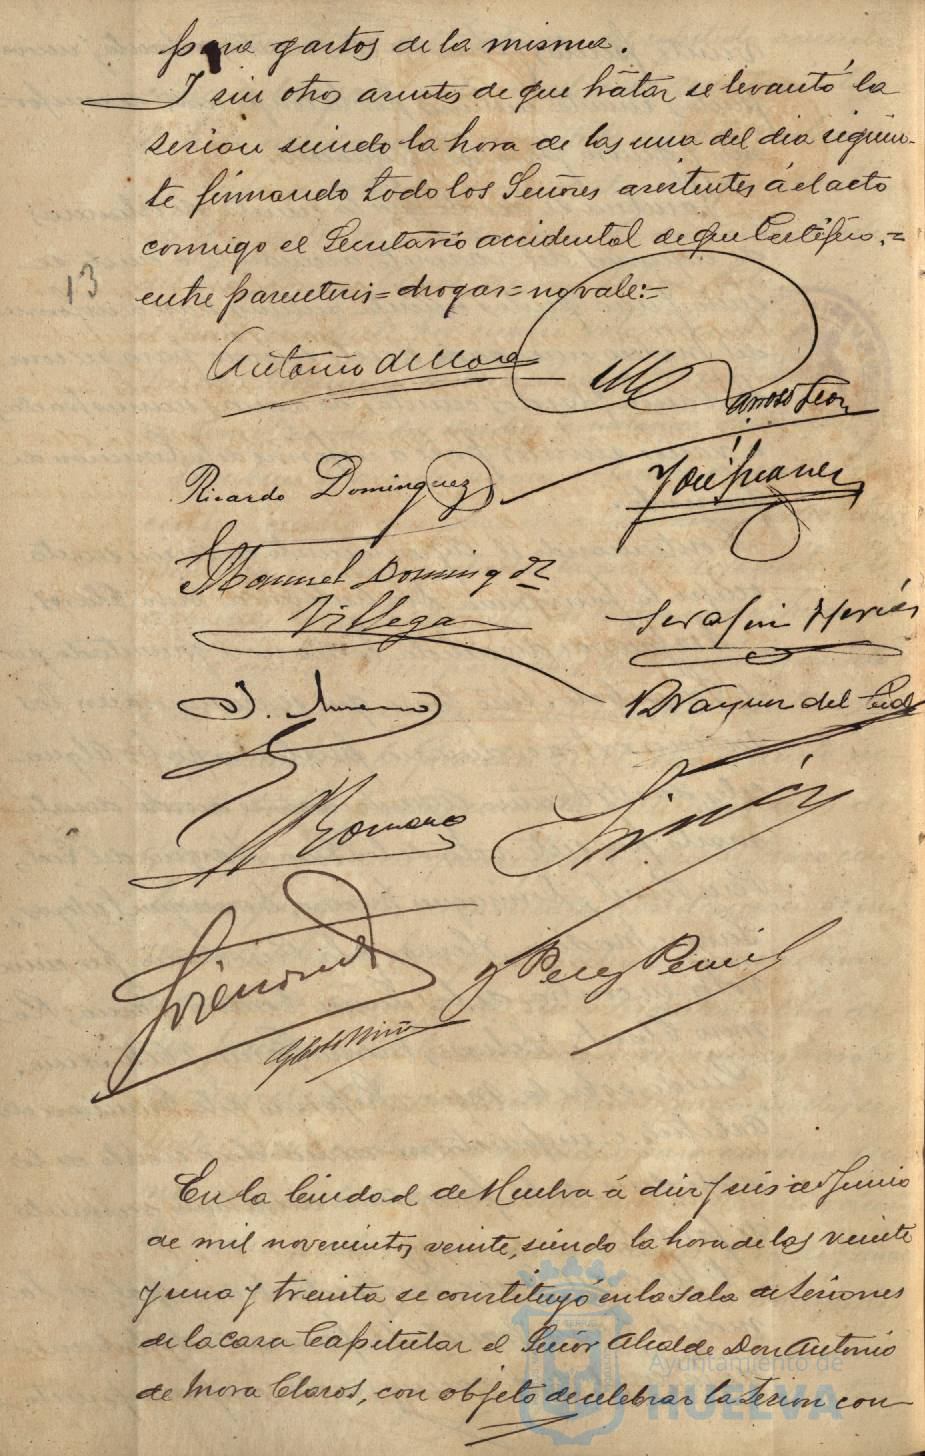 para gastos de la misma.
Y sin otros asuntos de que tratar se levantó la
sesion siendo la hora de las una del dia siguien-
te firmando todo los Señores asistentes á el acto
conmigo el Secretario accidental de que Certifico.=
13
entre parentesis=drogas=no vale:=
Antonio de Mora
Barroso Leon
Ricardo Dominguez
José Suarez
Manuel Doming
Villegas
Serafin
J. Moreno
Vazquez del Cid
Romero
y Perez
En la Ciudad de Huelva á diez y seis de Junio
de mil novecientos veinte, siendo la hora de las veinte
y una y treinta se constituyó en la sala de Sesiones
de la casa Capitular el Señor Alcalde Don Antonio
de Mora Claros, con objeto de celebrar la Sesion con-
Ayuntamiento de
HUELVA